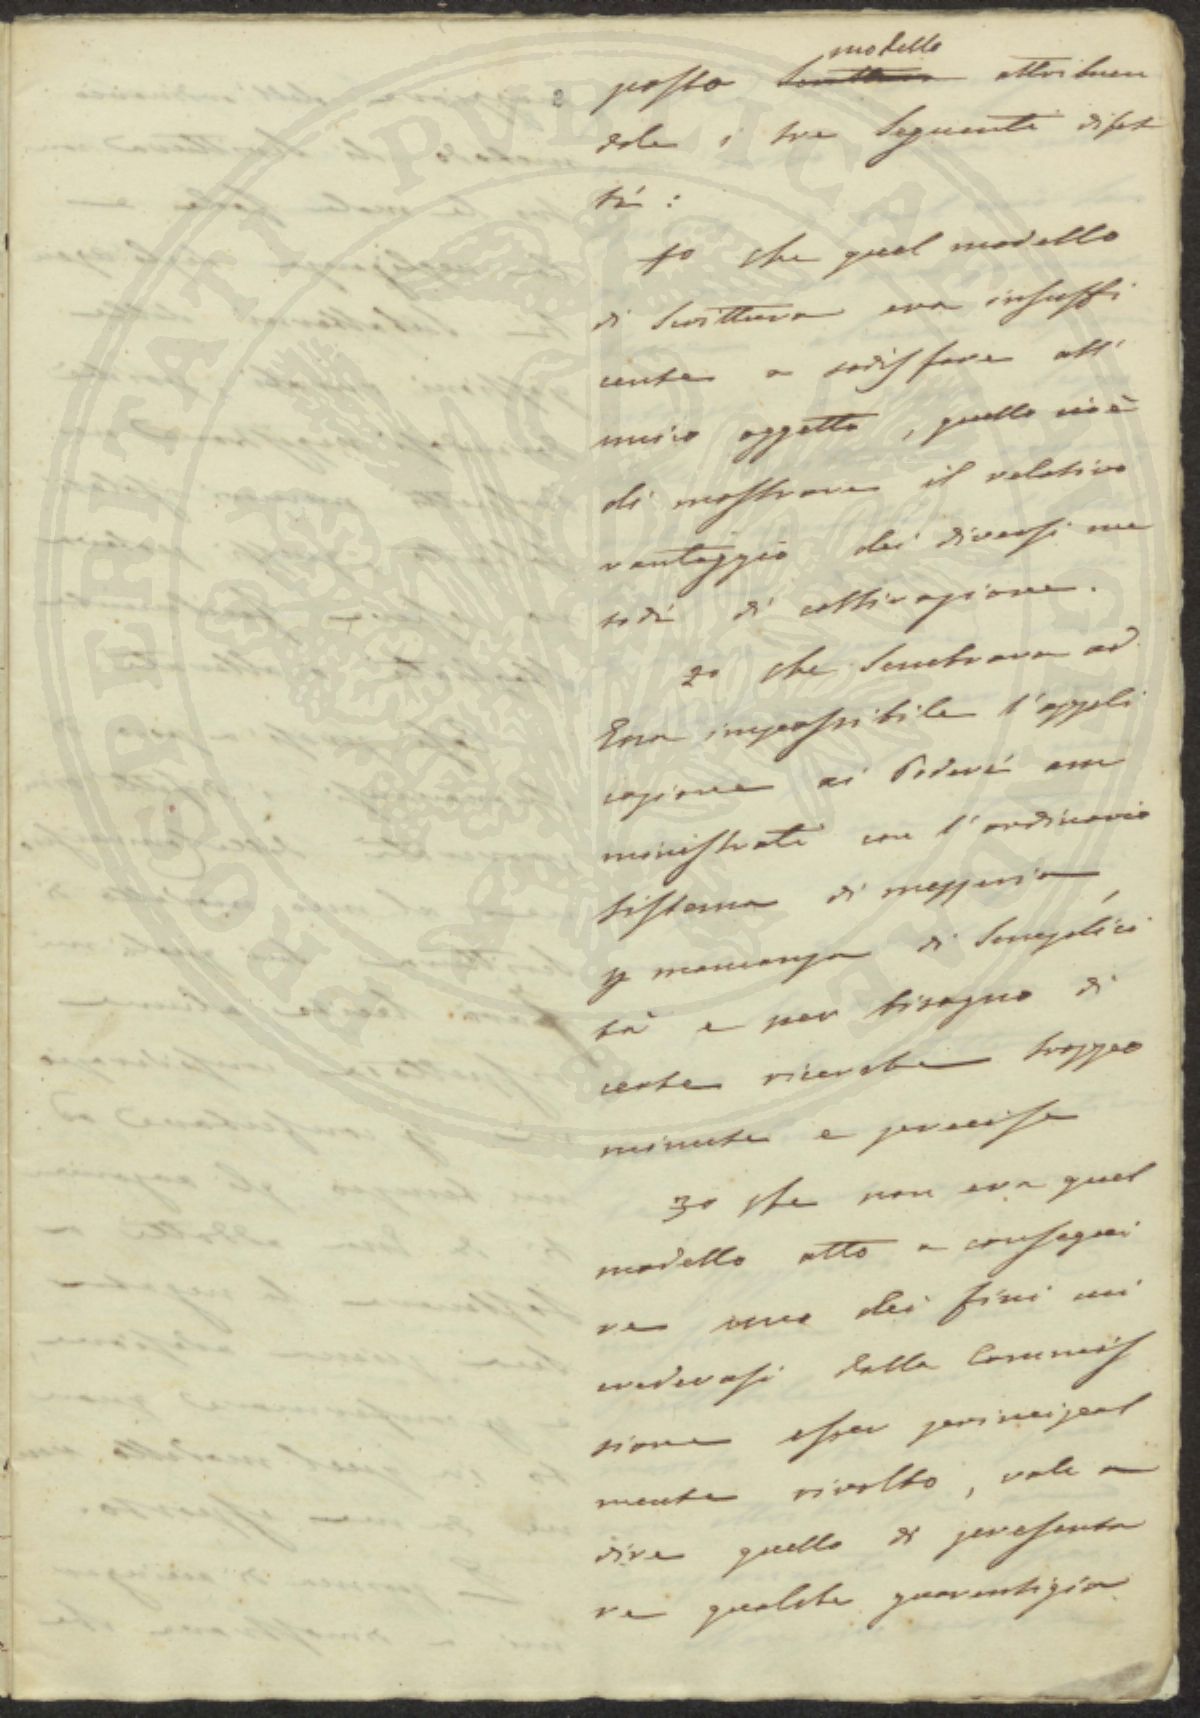 modello
posto Scrittura attribuen
dole i tre seguenti difet
ti:
1o che quel modello
di scrittura era insuffi
cente a sodisfare all'
unico oggetto, quello cioè
di mostrare il relativo
vantaggio dei diversi me
todi di coltivazione.
2o che sembrava ad
Essa impossibile l'appli
cazione ai Poderi am
ministrati con l'ordinario
sistema di mezzeria,
p mancanza di semplici
tà e per bisogno di
certe ricerche troppo
minute e precise
3o che non era quel
modello atto a consegui
re uno dei fini cui
credevasi dalla Commis
sione esser principal
mente rivolto, vale a
dire quello di presenta
re qualche guarentigia
PROSPERITATI PVBLICAE